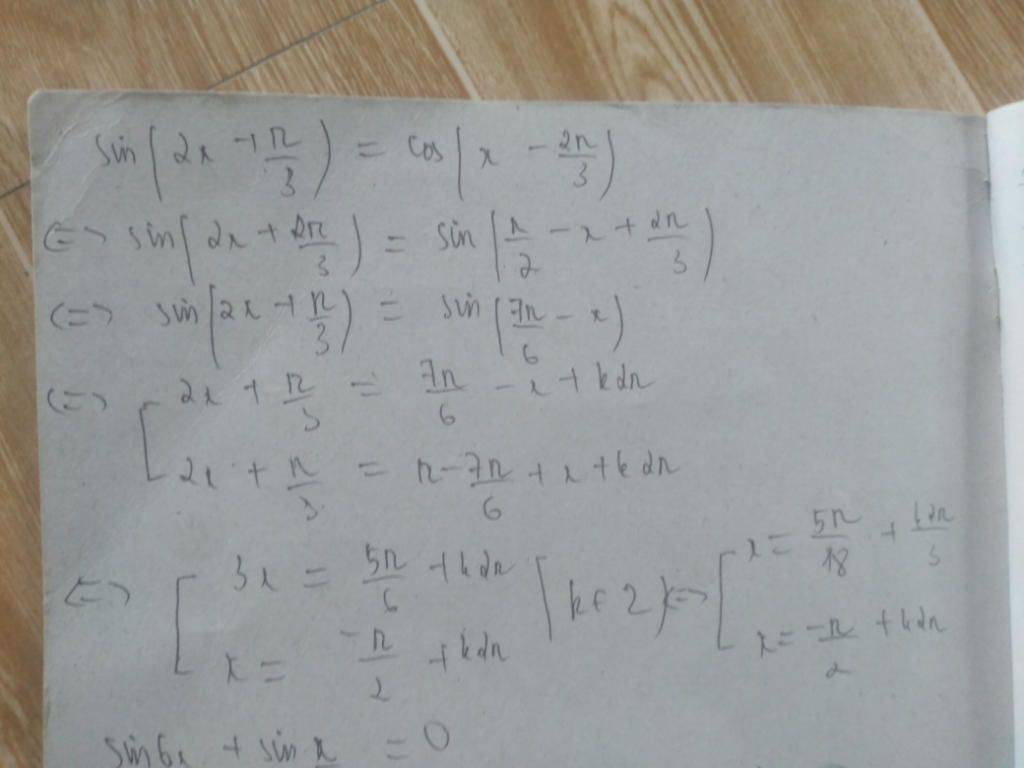 sin(2x + π/3) = cos(x - 2π/3)
<=> sin(2x + 2π/3) = sin(π/2 - x + 2π/3)
<=> sin(2x + π/3) = sin(7π/6 - x)
<=> [ 2x + π/3 = 7π/6 - x + k2π
2x + π/3 = π - 7π/6 + x + k2π
<=> [ 3x = 5π/6 + k2π (k ∈ Z) <=> [ x = 5π/18 + k2π/3
x = -π/2 + k2π x = -π/2 + k2π
sin6x + sin x = 0